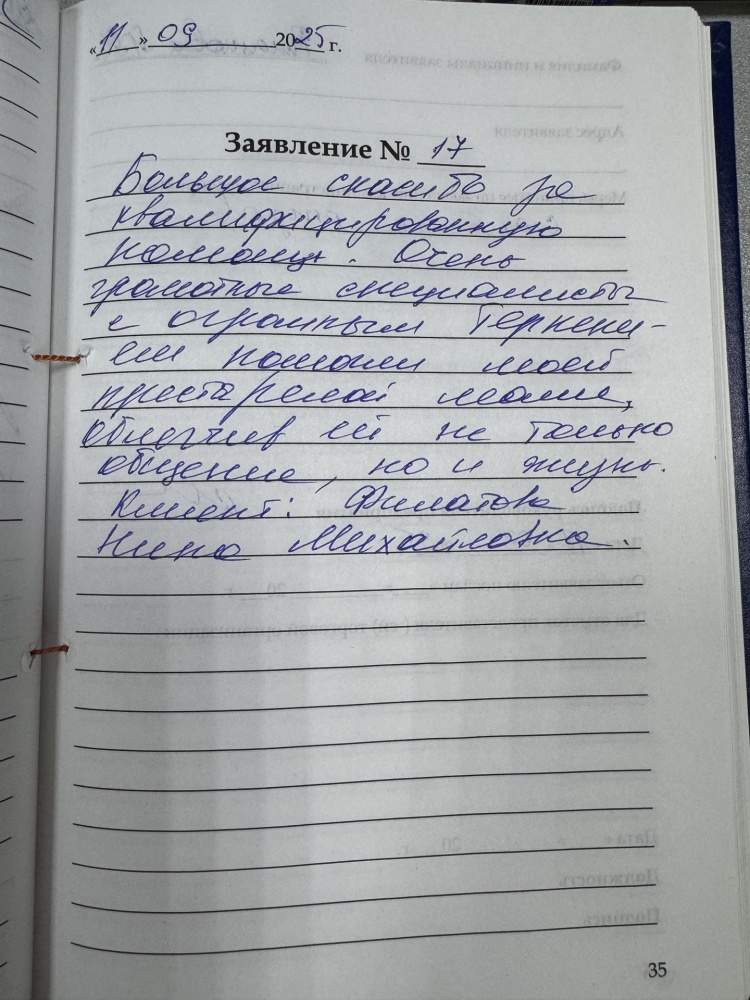 «11» 09 2025 г.
Заявление № 17
Большое спасибо за
квалифицированную
помощь. Очень
грамотные специалисты
с огромным терпени-
ем помогли моей
престарелой маме,
облегчив ей не только
общение, но и жизнь.
Клиент: Филатова
Нина Михайловна.
35